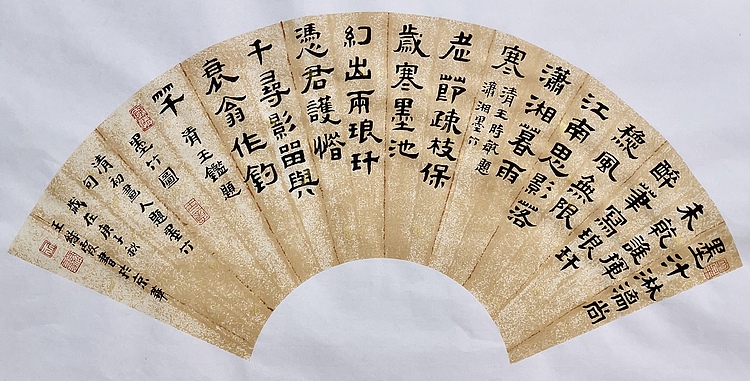 墨汁淋漓尚
未乾誰揮
醉筆寫琅玕
穐風無限
江南思影落
瀟湘暮雨
寒
清王時敏題
瀟湘墨竹
老節疎枝保
歲寒墨池
幻出兩琅玕
憑君護惜
千尋影留與
衰翁作釣
竿
清王鑑題
墨竹圖
清初畫人題墨竹
句
歲在庚子秋
王書於京華